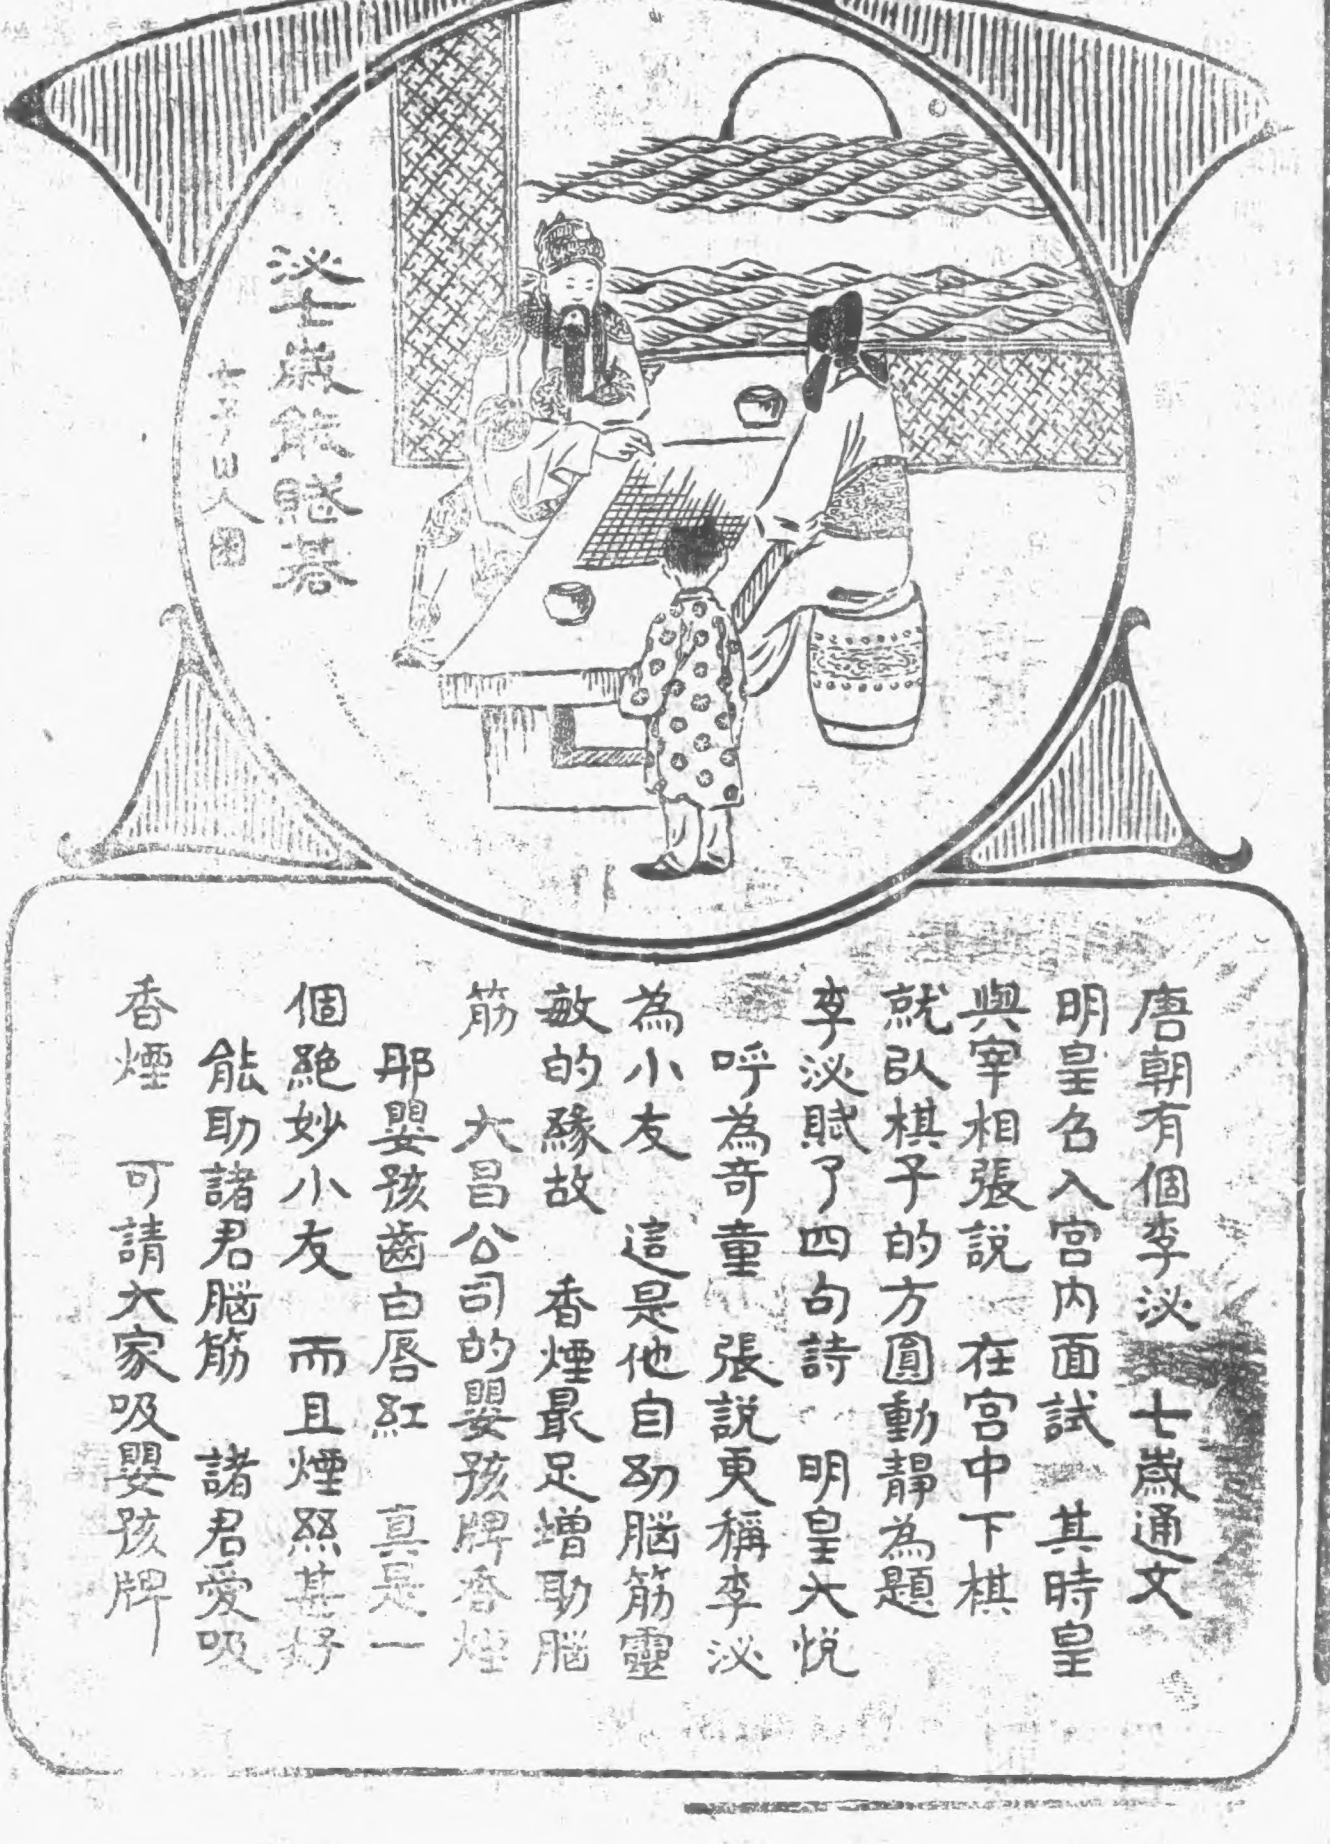 泌七歲能賦碁
唐朝有個李泌　七歲通文
明皇召入宮內面試　其時皇
與宰相張說　在宮中下棋
就以棋子的方圓動靜為題
李泌賦了四句詩　明皇大悅
呼為奇童　張說更稱李泌
為小友　這是他自幼腦筋靈
敏的緣故　香煙最足增助腦
筋　大昌公司的嬰孩牌香煙
那嬰孩齒白唇紅　真是一
個絕妙小友　而且煙絲甚好
能助諸君腦筋　諸君愛吸
香煙　可請大家吸嬰孩牌